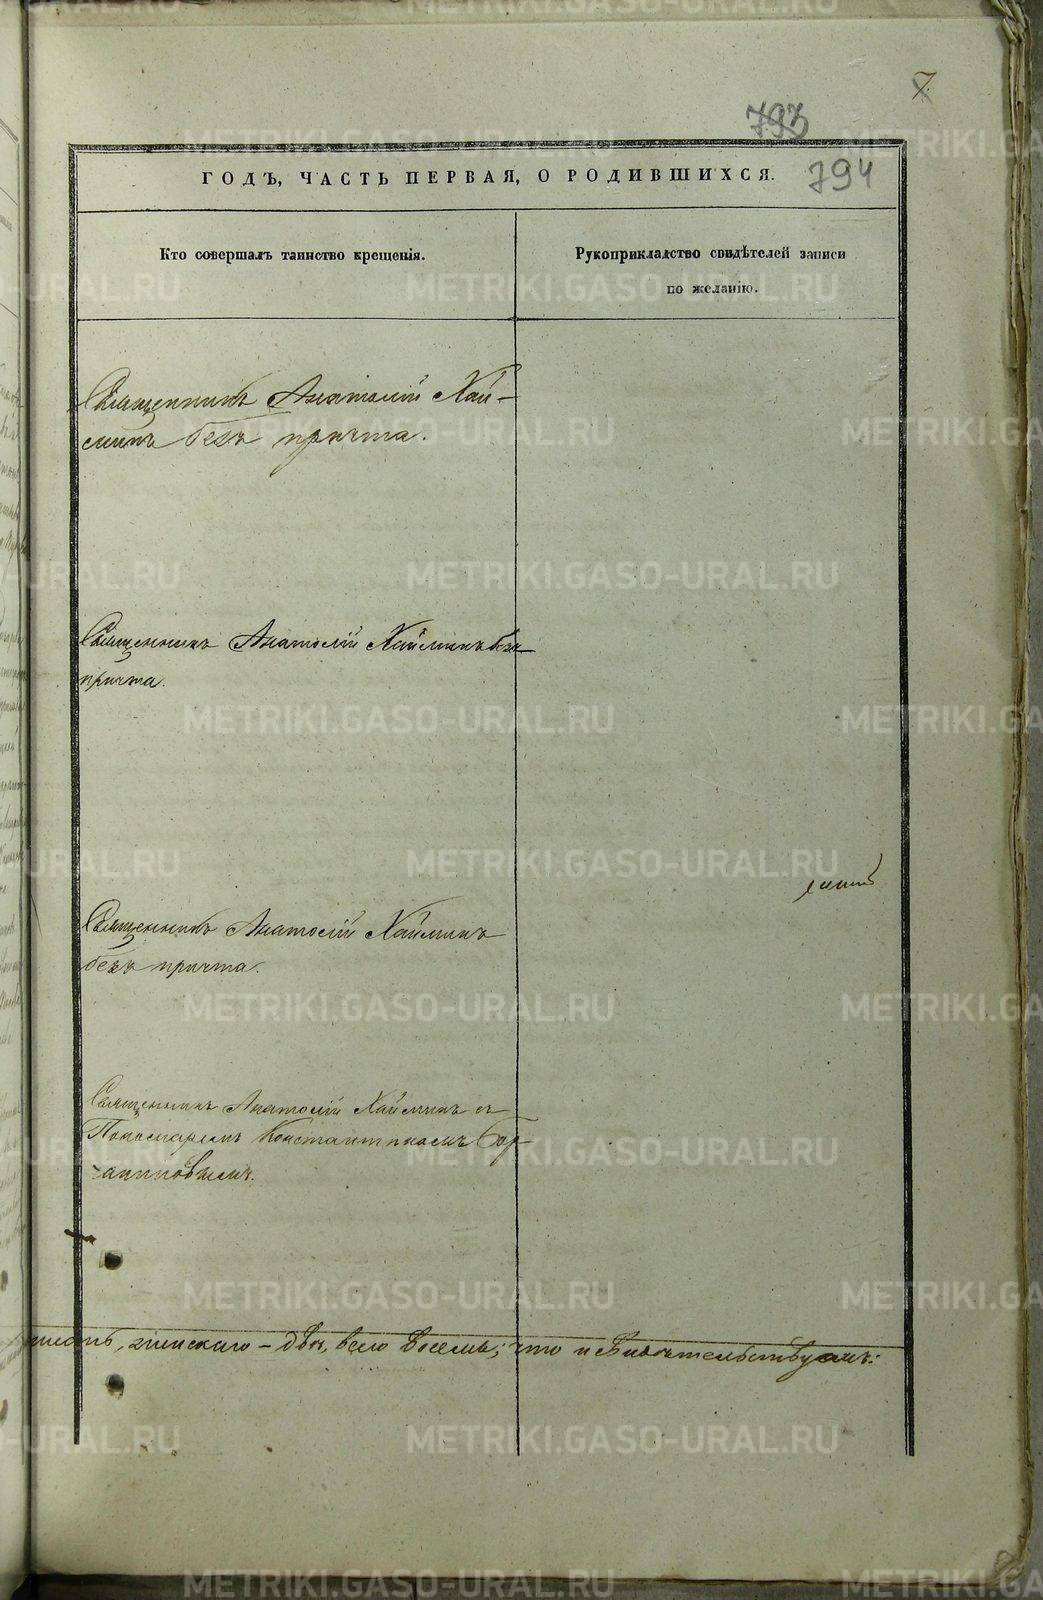 7
793
794
ГОДЪ, ЧАСТЬ ПЕРВАЯ, О РОДИВШИХСЯ.
Кто совершалъ таинство крещенія.
Рукоприкладство свидѣтелей записи
по желанію.
Священникъ Анатолій Хай-
минъ безъ причта.
Священникъ Анатолій Хайминъ безъ
причта.
Священникъ Анатолій Хайминъ
безъ причта.
Священникъ Анатолій Хайминъ съ
Пономаремъ Константиномъ
женскаго - двѣ, всего восемь; что и свидѣтельствуемъ:
METRIKI.GASO-URAL.RU